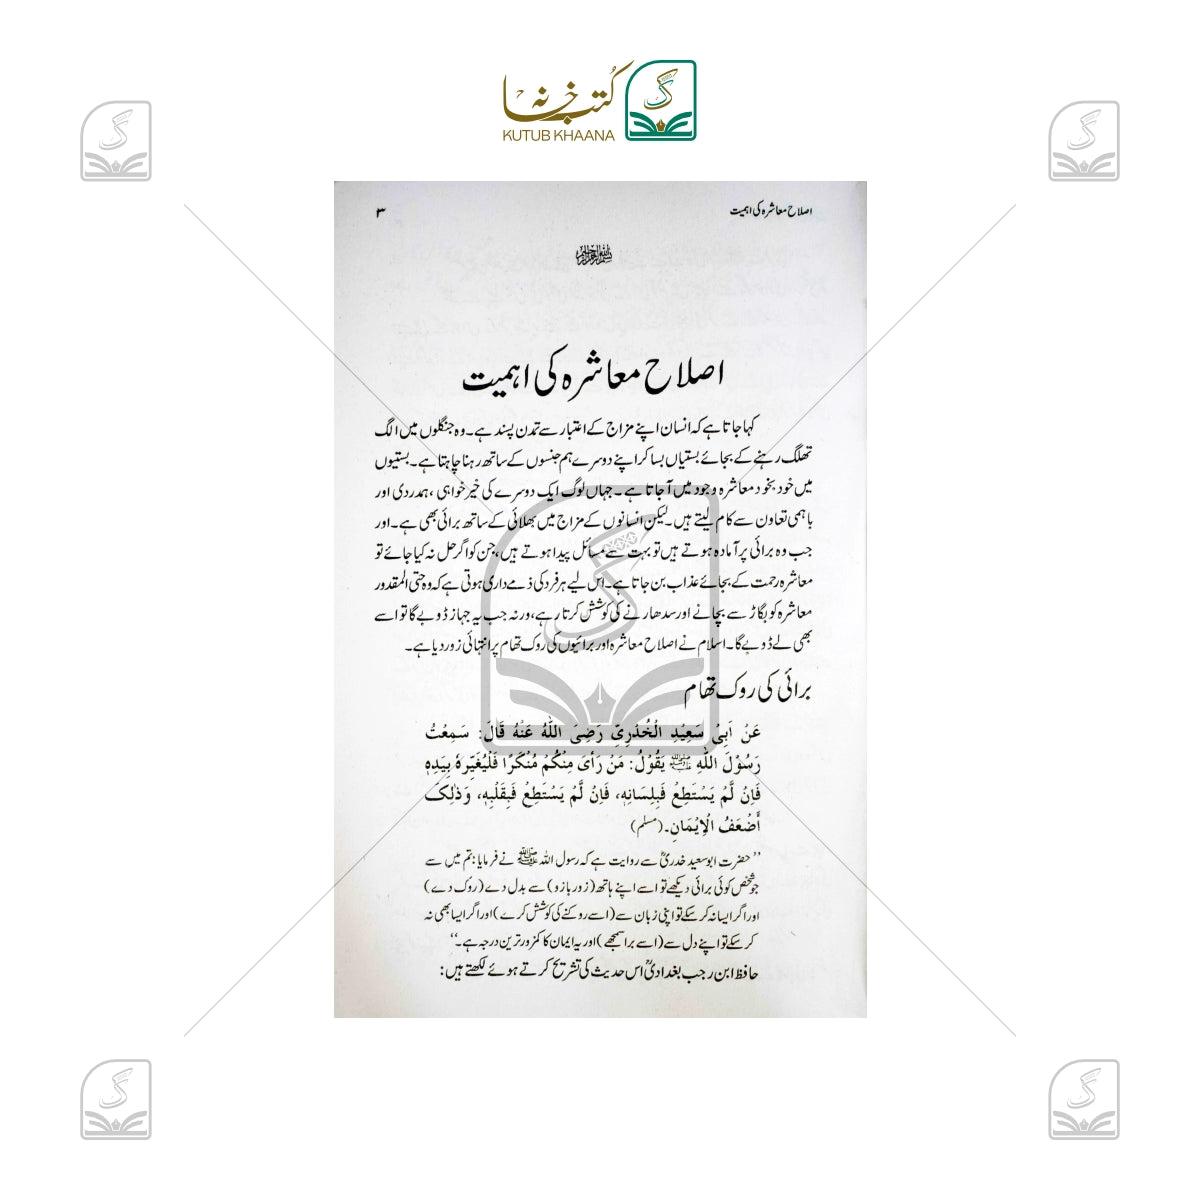 کتب خانہ
KUTUB KHAANA
اصلاح معاشرہ کی اہمیت ۳
بسم اللہ الرحمن الرحیم
اصلاح معاشرہ کی اہمیت
کہا جاتا ہے کہ انسان اپنے مزاج کے اعتبار سے تمدن پسند ہے۔ وہ جنگلوں میں الگ
تھلگ رہنے کے بجائے بستیاں بسا کر اپنے دوسرے ہم جنسوں کے ساتھ رہنا چاہتا ہے۔ بستیوں
میں خود بخود معاشرہ وجود میں آجاتا ہے۔ جہاں لوگ ایک دوسرے کی خیر خواہی، ہمدردی اور
باہمی تعاون سے کام لیتے ہیں۔ لیکن انسانوں کے مزاج میں بھلائی کے ساتھ برائی بھی ہے۔ اور
جب وہ برائی پر آمادہ ہوتے ہیں تو بہت سے مسائل پیدا ہوتے ہیں، جن کو اگر حل نہ کیا جائے تو
معاشرہ رحمت کے بجائے عذاب بن جاتا ہے۔ اس لیے ہر فرد کی ذمے داری ہوتی ہے کہ وہ حتی المقدور
معاشرہ کو بگاڑ سے بچانے اور سدھارنے کی کوشش کرتا رہے، ورنہ جب یہ جہاز ڈوبے گا تو اسے
بھی لے ڈوبے گا۔ اسلام نے اصلاح معاشرہ اور برائیوں کی روک تھام پر انتہائی زور دیا ہے۔
برائی کی روک تھام
عَنْ اَبِیْ سَعِیْدِ الْخُدْرِیِّ رَضِیَ اللّٰهُ عَنْهُ قَالَ: سَمِعْتُ
رَسُوْلَ اللّٰهِ ﷺ یَقُوْلُ: مَنْ رَأٰی مِنْکُمْ مُنْکَرًا فَلْیُغَیِّرْهُ بِیَدِهٖ
فَاِنْ لَّمْ یَسْتَطِعْ فَبِلِسَانِهٖ، فَاِنْ لَّمْ یَسْتَطِعْ فَبِقَلْبِهٖ، وَذٰلِکَ
أَضْعَفُ الْاِیْمَانِ۔ (مسلم)
’’حضرت ابو سعید خدریؓ سے روایت ہے کہ رسول اللہ ﷺ نے فرمایا: تم میں سے
جو شخص کوئی برائی دیکھے تو اسے اپنے ہاتھ (زور بازو) سے بدل دے (روک دے)
اور اگر ایسا نہ کر سکے تو اپنی زبان سے (اسے روکنے کی کوشش کرے) اور اگر ایسا بھی نہ
کر سکے تو اپنے دل سے (اسے برا سمجھے) اور یہ ایمان کا کمزور ترین درجہ ہے۔‘‘
حافظ ابن رجب بغدادیؒ اس حدیث کی تشریح کرتے ہوئے لکھتے ہیں: